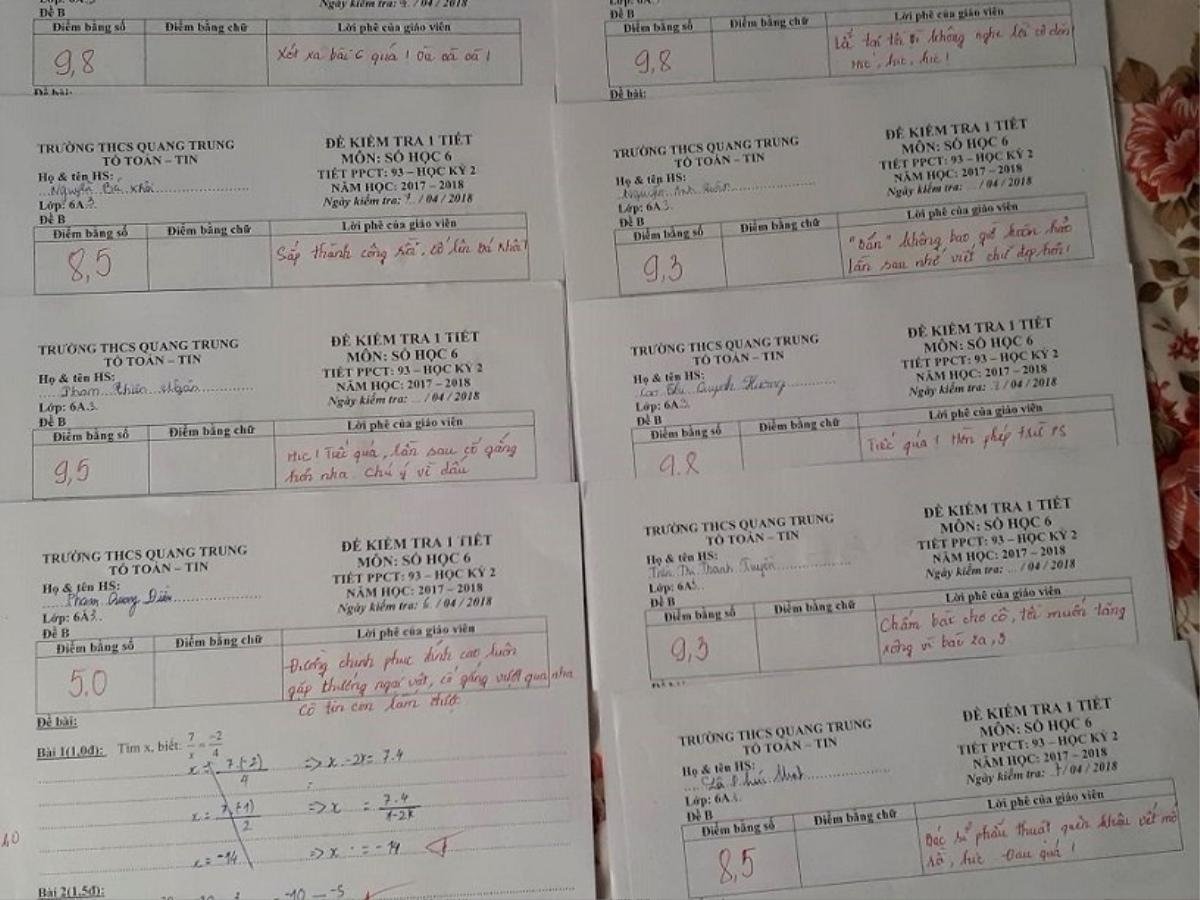 Đề B
Điểm bằng số Điểm bằng chữ Lời phê của giáo viên
9,8 Xót xa bài 6 quá! Òa òa òa!
Ngày kiểm tra: /04/2018
Đề B
Điểm bằng số Điểm bằng chữ Lời phê của giáo viên
9,8 không nghe lời cô dặn
Hic, hic, hic!
Đề bài:
TRƯỜNG THCS QUANG TRUNG
TỔ TOÁN – TIN
ĐỀ KIỂM TRA 1 TIẾT
MÔN: SỐ HỌC 6
TIẾT PPCT: 93 – HỌC KỲ 2
NĂM HỌC: 2017 – 2018
Ngày kiểm tra: /04/2018
Họ & tên HS:
Nguyễn Bá Khôi
Lớp: 6A3
Đề B
Điểm bằng số Điểm bằng chữ Lời phê của giáo viên
8,5 Sắp thành công rồi, cố lên Bá Khôi!
TRƯỜNG THCS QUANG TRUNG
TỔ TOÁN – TIN
ĐỀ KIỂM TRA 1 TIẾT
MÔN: SỐ HỌC 6
TIẾT PPCT: 93 – HỌC KỲ 2
NĂM HỌC: 2017 – 2018
Ngày kiểm tra: .../04/2018
Họ & tên HS:
Nguyễn Anh
Lớp: 6A3
Đề B
Điểm bằng số Điểm bằng chữ Lời phê của giáo viên
9,3 không bao giờ hoàn hảo
lần sau nhớ viết chữ đẹp hơn!
TRƯỜNG THCS QUANG TRUNG
TỔ TOÁN – TIN
ĐỀ KIỂM TRA 1 TIẾT
MÔN: SỐ HỌC 6
TIẾT PPCT: 93 – HỌC KỲ 2
NĂM HỌC: 2017 – 2018
Ngày kiểm tra: .../04/2018
Họ & tên HS:
Phạm Thiên Ngân
Lớp: 6A3
Đề B
Điểm bằng số Điểm bằng chữ Lời phê của giáo viên
9,5 Hic! Tiếc quá, lần sau cố gắng
hơn nha. Chú ý về dấu
TRƯỜNG THCS QUANG TRUNG
TỔ TOÁN – TIN
ĐỀ KIỂM TRA 1 TIẾT
MÔN: SỐ HỌC 6
TIẾT PPCT: 93 – HỌC KỲ 2
NĂM HỌC: 2017 – 2018
Ngày kiểm tra: /04/2018
Họ & tên HS:
Cao Thị Quỳnh Hương
Lớp: 6A3
Đề B
Điểm bằng số Điểm bằng chữ Lời phê của giáo viên
9.8 Tiếc quá! phép trừ PS
TRƯỜNG THCS QUANG TRUNG
TỔ TOÁN – TIN
ĐỀ KIỂM TRA 1 TIẾT
MÔN: SỐ HỌC 6
TIẾT PPCT: 93 – HỌC KỲ 2
NĂM HỌC: 2017 – 2018
Ngày kiểm tra: 6/04/2018
Họ & tên HS:
Phạm Dương
Lớp: 6A3
Đề B
Điểm bằng số Điểm bằng chữ Lời phê của giáo viên
5.0 Đường chinh phục đỉnh cao luôn
gặp chướng ngại vật, cố gắng vượt qua nha
Cô tin con làm được
Đề bài:
Bài 1(1,0đ): Tìm x, biết: 7/x = -2/4
x = 7.(-2)/4 => x.-2x = 7.4
x = 7.(-1)/2 => x = 7.4/
x = -14 => x = -14
1.0
Bài 2(1,5đ):
TRƯỜNG THCS QUANG TRUNG
TỔ TOÁN – TIN
ĐỀ KIỂM TRA 1 TIẾT
MÔN: SỐ HỌC 6
TIẾT PPCT: 93 – HỌC KỲ 2
NĂM HỌC: 2017 – 2018
Ngày kiểm tra: .../04/2018
Họ & tên HS:
Trần Thị Thanh Tuyền
Lớp: 6A3
Đề B
Điểm bằng số Điểm bằng chữ Lời phê của giáo viên
9,3 Chấm bài cho cô, tôi muốn tăng
xông vì bài
TRƯỜNG THCS QUANG TRUNG
TỔ TOÁN – TIN
ĐỀ KIỂM TRA 1 TIẾT
MÔN: SỐ HỌC 6
TIẾT PPCT: 93 – HỌC KỲ 2
NĂM HỌC: 2017 – 2018
Ngày kiểm tra: /04/2018
Họ & tên HS:
Lớp: 6A
Đề B
Điểm bằng số Điểm bằng chữ Lời phê của giáo viên
8,5 Bác sĩ phẫu thuật quên khâu vết mổ
rồi, hic. Đau quá!